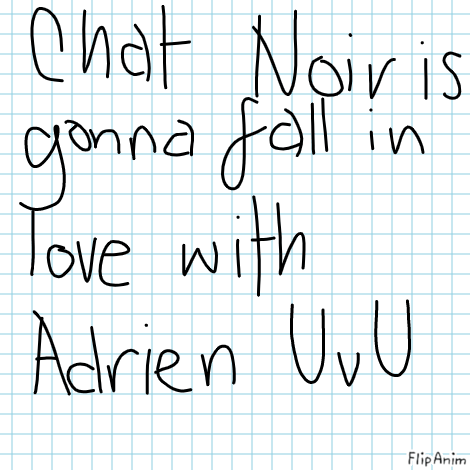 Chat Noir is
gonna fall in
love with
Adrien UvU
FlipAnim